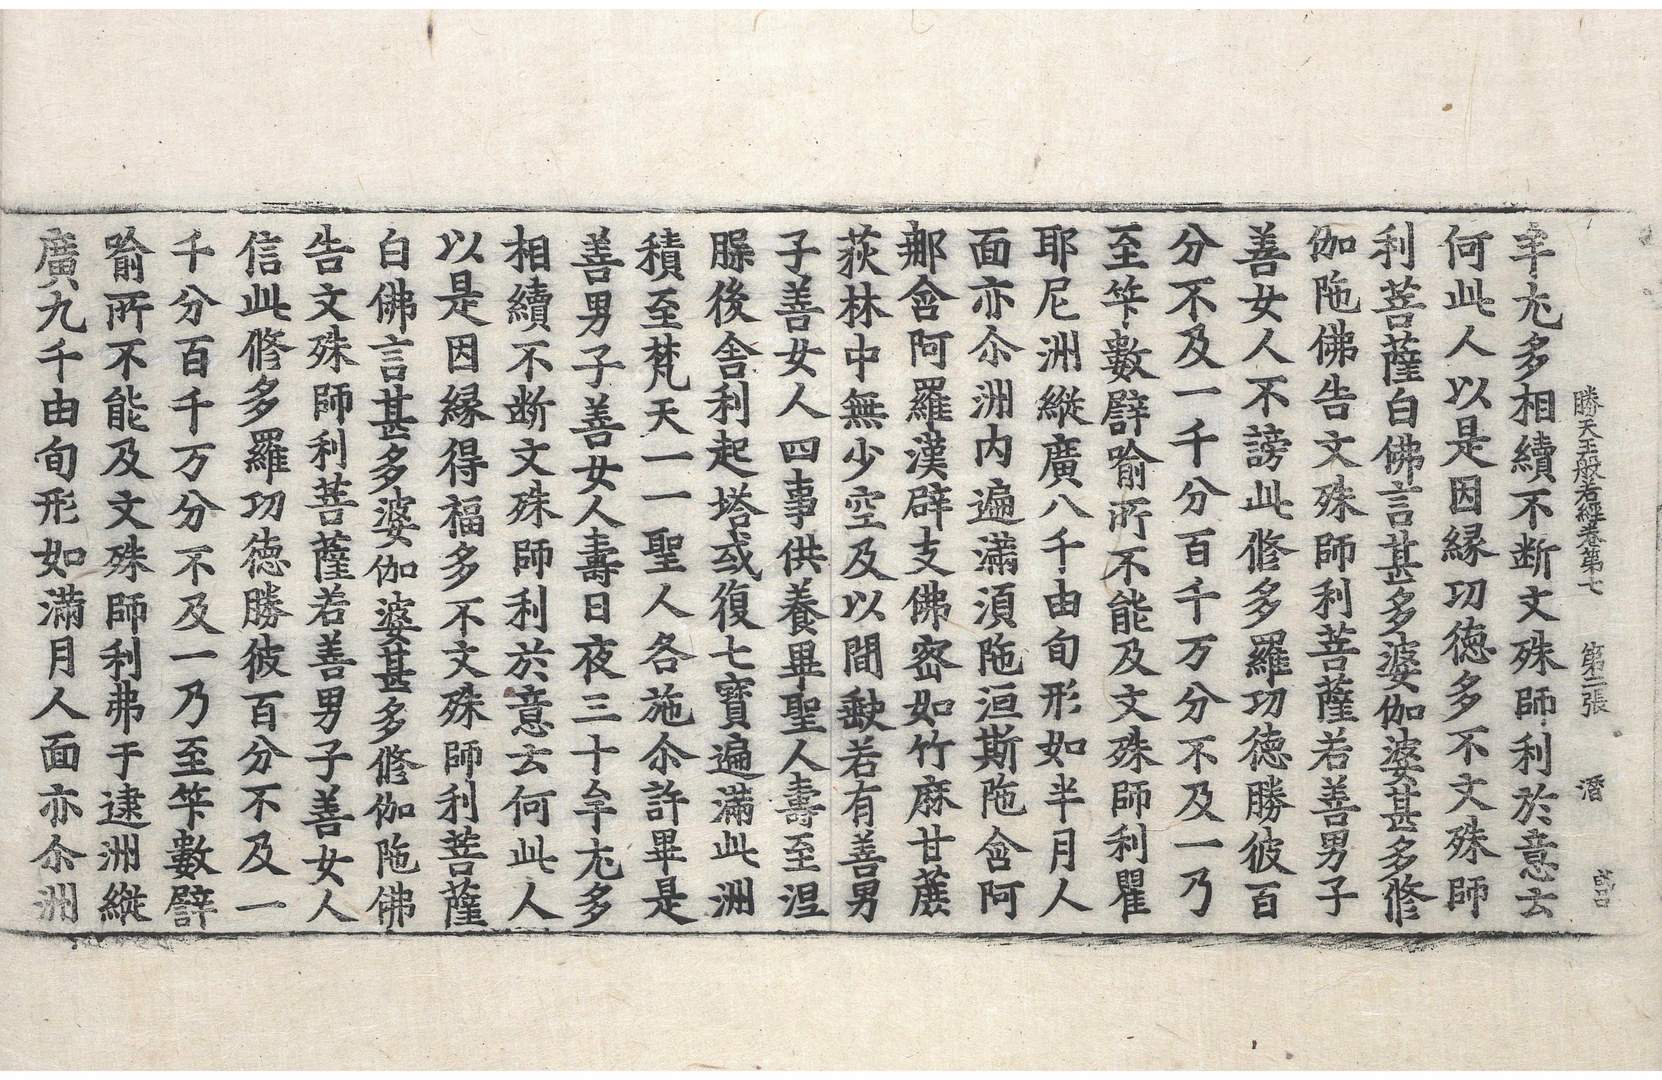 勝天王般若經卷第七 第二張 潛
年尤多相續不断文殊師利於意云
何此人以是因縁功徳多不文殊師
利菩薩白佛言甚多婆伽婆甚多修
伽陁佛告文殊師利菩薩若善男子
善女人不謗此修多羅功徳勝彼百
分不及一千分百千万分不及一乃
至筭數譬喻所不能及文殊師利瞿
耶尼洲縱廣八千由旬形如半月人
面亦尒洲内遍滿湏陁洹斯陁含阿
那含阿羅漢辟支佛密如竹麻甘蔗
荻林中無少空及以間缺若有善男
子善女人四事供養畢聖人壽至涅
槃後舍利起塔或復七寳遍滿此洲
積至梵天一一聖人各施尒許畢是
善男子善女人壽日夜三十年尤多
相續不断文殊師利於意云何此人
以是因縁得福多不文殊師利菩薩
白佛言甚多婆伽婆甚多修伽陁佛
告文殊師利菩薩若善男子善女人
信此修多羅功徳勝彼百分不及一
千分百千万分不及一乃至筭數譬
喻所不能及文殊師利弗于逮洲縱
廣九千由旬形如滿月人面亦尒洲